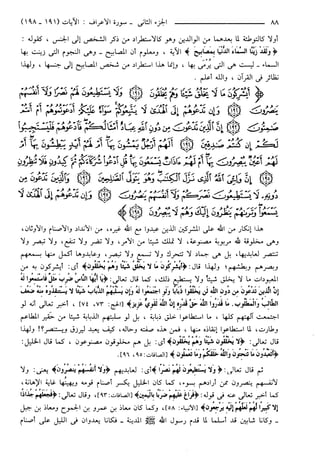 الجزء الثاني - سورة الأعراف : الآيات (١٩١ - ١٩٨)
أولا كالتوطئة لما بعدهما من الوالدين وهو كالاستطراد من ذكر الشخص إلى الجنس ، كقوله :
﴿ وَلَقَدْ زَيَّنَّا السَّمَاءَ الدُّنْيَا بِمَصَابِيحَ ﴾ الآية ، ومعلوم أن المصابيح - وهى النجوم التى زينت بها
السماء - ليست هى التى يُرْمَى بها ، وإنما هذا استطراد من شخص المصابيح إلى جنسها ، ولهذا
نظائر فى القرآن ، والله أعلم .
أَيُشْرِكُونَ مَا لَا يَخْلُقُ شَيْئًا وَهُمْ يُخْلَقُونَ وَلَا يَسْتَطِيعُونَ لَهُمْ نَصْرًا وَلَا أَنْفُسَهُمْ
يَنْصُرُونَ وَإِنْ تَدْعُوهُمْ إِلَى الْهُدَى لَا يَتَّبِعُوكُمْ سَوَاءٌ عَلَيْكُمْ أَدَعَوْتُمُوهُمْ أَمْ أَنْتُمْ
صَامِتُونَ إِنَّ الَّذِينَ تَدْعُونَ مِنْ دُونِ اللَّهِ عِبَادٌ أَمْثَالُكُمْ فَادْعُوهُمْ فَلْيَسْتَجِيبُوا
لَكُمْ إِنْ كُنْتُمْ صَادِقِينَ أَلَهُمْ أَرْجُلٌ يَمْشُونَ بِهَا أَمْ لَهُمْ أَيْدٍ يَبْطِشُونَ بِهَا أَمْ لَهُمْ أَعْيُنٌ
يُبْصِرُونَ بِهَا أَمْ لَهُمْ آذَانٌ يَسْمَعُونَ بِهَا قُلِ ادْعُوا شُرَكَاءَكُمْ ثُمَّ كِيدُونِ فَلَا تُنْظِرُونِ
إِنَّ وَلِيِّيَ اللَّهُ الَّذِي نَزَّلَ الْكِتَابَ وَهُوَ يَتَوَلَّى الصَّالِحِينَ وَالَّذِينَ تَدْعُونَ مِنْ
دُونِهِ لَا يَسْتَطِيعُونَ نَصْرَكُمْ وَلَا أَنْفُسَهُمْ يَنْصُرُونَ وَإِنْ تَدْعُوهُمْ إِلَى الْهُدَى لَا
يَسْمَعُوا وَتَرَاهُمْ يَنْظُرُونَ إِلَيْكَ وَهُمْ لَا يُبْصِرُونَ
هذا إنكار من الله على المشركين الذين عبدوا مع الله غيره، من الأنداد والأصنام والأوثان،
وهى مخلوقة لله مربوبة مصنوعة، لا تملك شيئا من الأمر، ولا تضر ولا تنفع، ولا تبصر ولا
تنتصر لعابديها، بل هى جماد لا تتحرك ولا تسمع ولا تبصر، وعابدوها أكمل منها بسمعهم
وبصرهم وبطشهم؛ ولهذا قال: ﴿أَيُشْرِكُونَ مَا لَا يَخْلُقُ شَيْئًا وَهُمْ يُخْلَقُونَ﴾ أى: أتشركون به من
المعبودات ما لا يخلق شيئاً ولا يستطيع ذلك، كما قال تعالى: ﴿يَا أَيُّهَا النَّاسُ ضُرِبَ مَثَلٌ فَاسْتَمِعُوا لَهُ
إِنَّ الَّذِينَ تَدْعُونَ مِنْ دُونِ اللَّهِ لَنْ يَخْلُقُوا ذُبَابًا وَلَوِ اجْتَمَعُوا لَهُ وَإِنْ يَسْلُبْهُمُ الذُّبَابُ شَيْئًا لَا يَسْتَنْقِذُوهُ مِنْهُ ضَعُفَ
الطَّالِبُ وَالْمَطْلُوبُ. مَا قَدَرُوا اللَّهَ حَقَّ قَدْرِهِ إِنَّ اللَّهَ لَقَوِيٌّ عَزِيزٌ﴾ [الحج: ٧٣، ٧٤] ، أخبر تعالى أنه لو
اجتمعت آلهتهم كلها ، ما استطاعوا خلق ذبابة ، بل لو سلبتهم الذبابة شيئا من حَقير المطاعم
وطارت، لما استطاعوا إنقاذه منها ، فمن هذه صفته وحاله، كيف يعبد ليرزق ويستنصر؟! ولهذا
قال تعالى: ﴿لَا يَخْلُقُونَ شَيْئًا وَهُمْ يُخْلَقُونَ﴾ أى: بل هم مخلوقون مصنوعون ، كما قال الخليل:
﴿أَتَعْبُدُونَ مَا تَنْحِتُونَ وَاللَّهُ خَلَقَكُمْ وَمَا تَعْمَلُونَ ﴾ [الصافات: ٩٥ ، ٩٦].
ثم قال تعالى: ﴿وَلَا يَسْتَطِيعُونَ لَهُمْ نَصْرًا﴾ أى: لعابديهم ﴿وَلَا أَنْفُسَهُمْ يَنْصُرُونَ﴾ يعنى: ولا
لأنفسهم ينصرون ممن أرادهم بسوء، كما كان الخليل يكسر أصنام قومه ويهينها غاية الإهانة،
كما أخبر تعالى عنه فى قوله: ﴿فَرَاغَ عَلَيْهِمْ ضَرْبًا بِالْيَمِينِ﴾ [الصافات: ٩٣]، وقال تعالى: ﴿فَجَعَلَهُمْ جُذَاذًا
إِلَّا كَبِيرًا لَهُمْ لَعَلَّهُمْ إِلَيْهِ يَرْجِعُونَ﴾ [الأنبياء: ٥٨]، وكما كان معاذ بن عمرو بن الجموح ومعاذ بن جبل
- وكانا شابين قد أسلما لما قدم رسول الله ﷺ المدينة - فكانا يعدوان فى الليل على أصنام